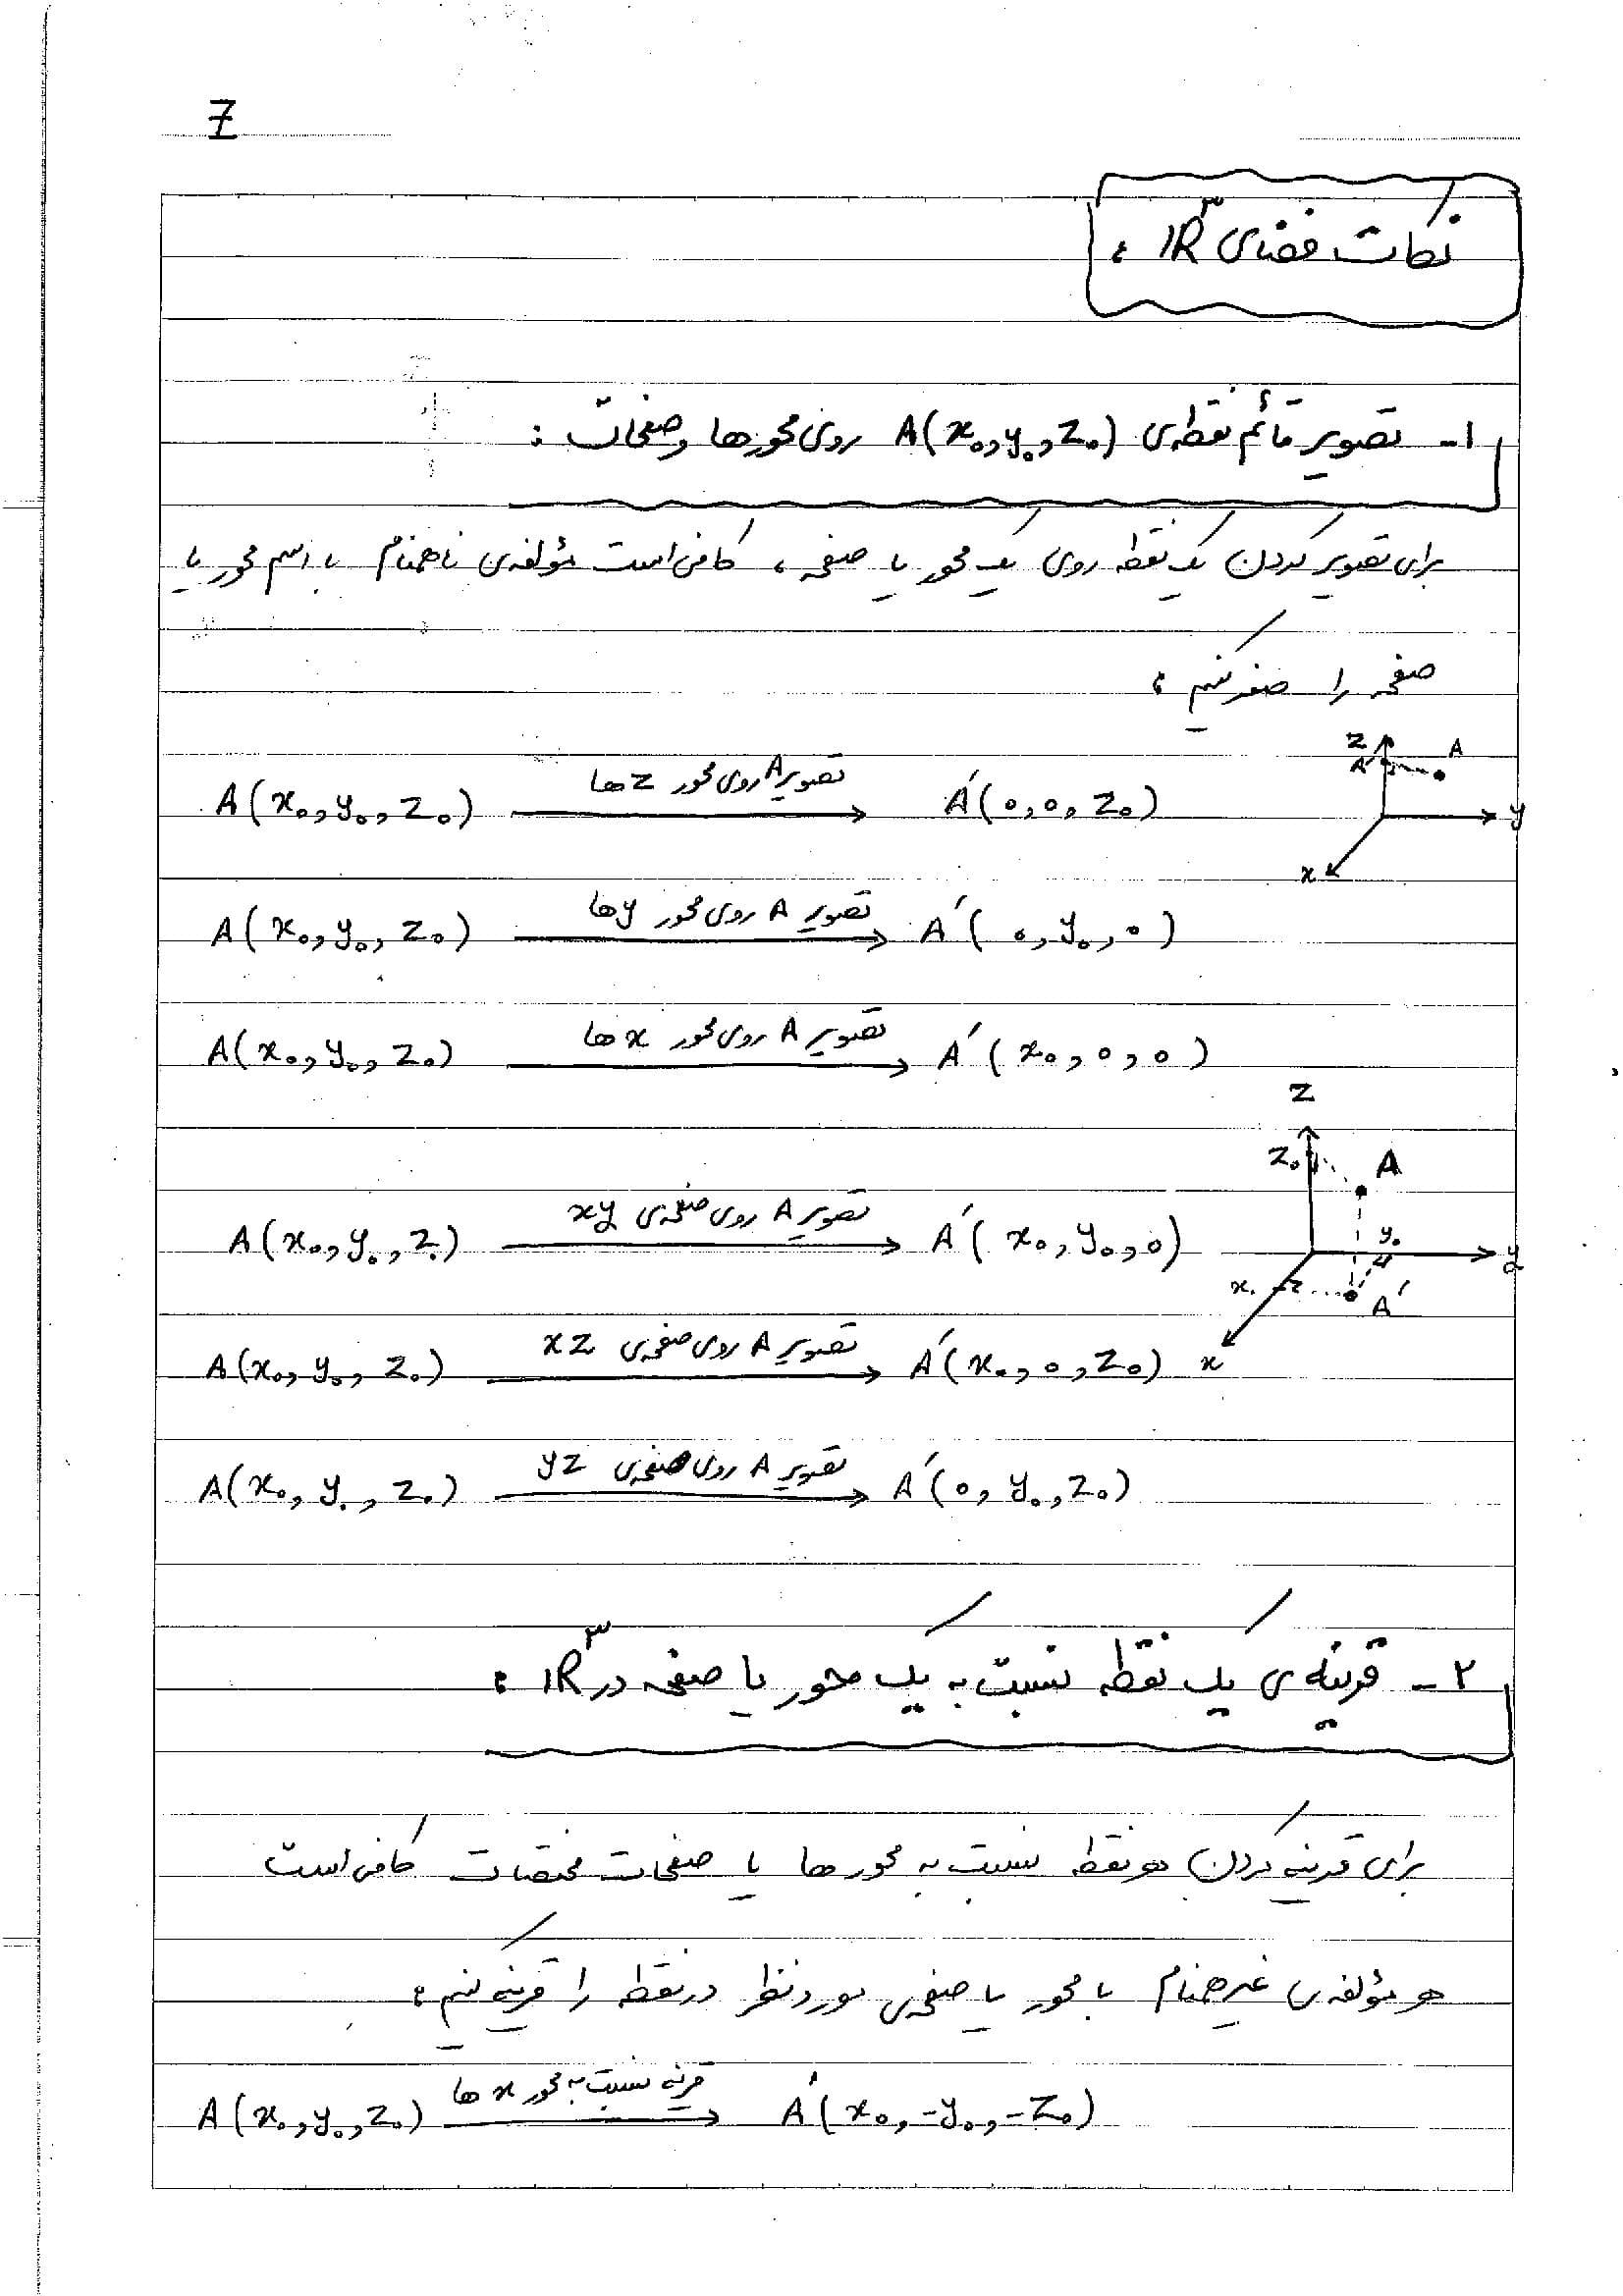 7
نکات فضای IR³ :
۱- تصویر قائم نقطه‌ی A(x₀,y₀,z₀) روی محورها و صفحات :
برای تصویر کردن یک نقطه روی یک محور یا صفحه ، کافی است مؤلفه‌ی ناهمنام با اسم محور یا
صفحه را صفر کنیم :
A(x₀,y₀,z₀) تصویر A روی محور z ها → A′(0,0,z₀)
z A′ A y x
A(x₀,y₀,z₀) تصویر A روی محور y ها → A′(0,y₀,0)
A(x₀,y₀,z₀) تصویر A روی محور x ها → A′(x₀,0,0)
z z₀ A y₀ y x₀ A′ x
A(x₀,y₀,z₀) تصویر A روی صفحه‌ی xy → A′(x₀,y₀,0)
A(x₀,y₀,z₀) تصویر A روی صفحه‌ی xz → A′(x₀,0,z₀)
A(x₀,y₀,z₀) تصویر A روی صفحه‌ی yz → A′(0,y₀,z₀)
۲- قرینه‌ی یک نقطه نسبت به یک محور یا صفحه در IR³ :
برای قرینه کردن هر نقطه نسبت به محورها یا صفحات مختصات کافی است
هر مؤلفه‌ی غیرهمنام با محور یا صفحه‌ی مورد نظر در نقطه را قرینه کنیم :
A(x₀,y₀,z₀) قرینه نسبت به محور x ها → A′(x₀,-y₀,-z₀)